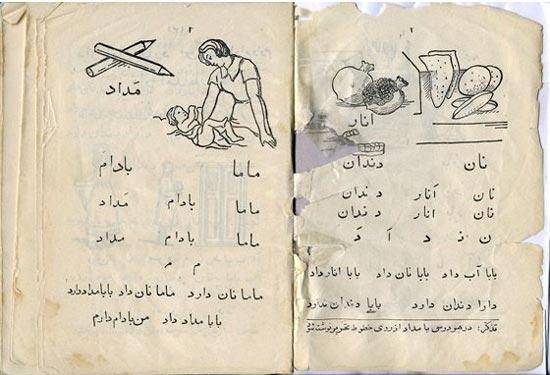 اَنار
نان دندان
نان اَنار دندان
نان انار دندان
ن نـ د اَ
بابا آب داد بابا نان داد بابا انار داد
دارا دندان دارد بابا دندان ندارد
تذکر: در هر درسی با مداد از روی خطوط
مَداد
ماما بادام
ماما بادام مَداد
ماما بادام مداد
م مـ
ماما نان دارد ماما نان داد بابا مداد دارد
بابا مداد داد من بادام دارم